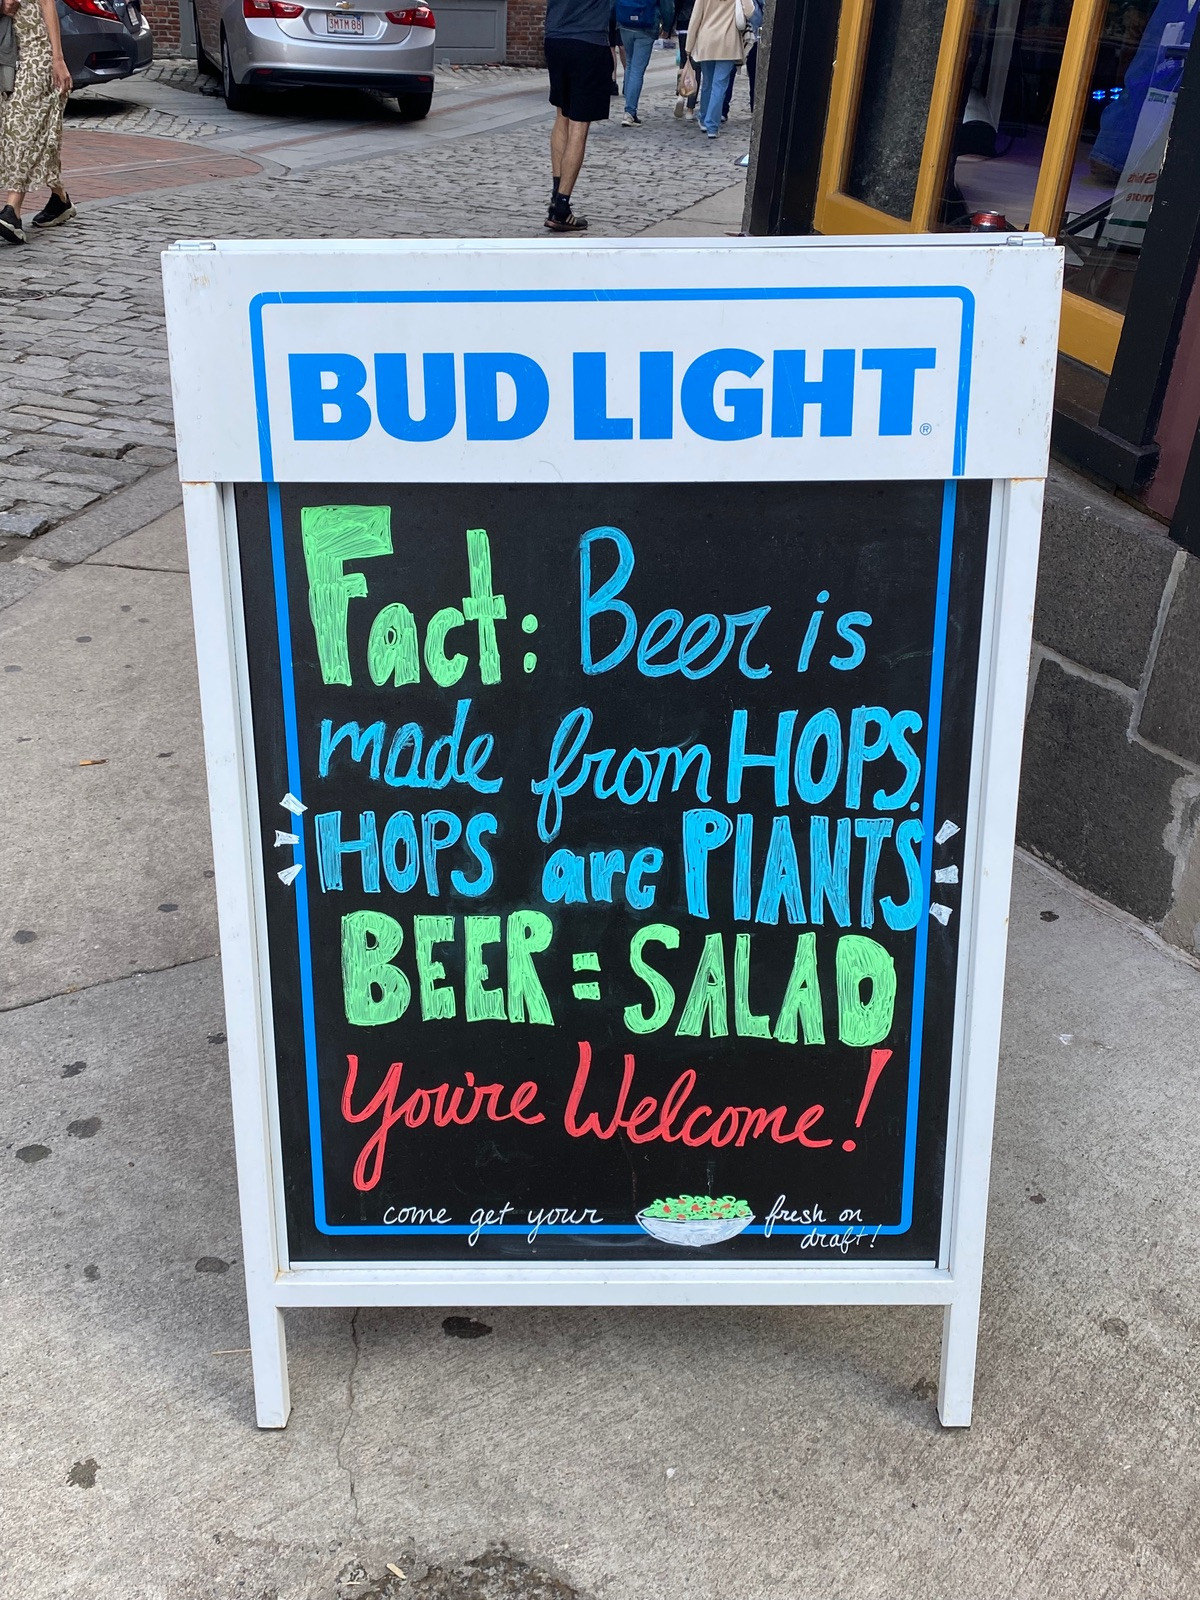 3MTM 88
BUD LIGHT®
Fact: Beer is
made from HOPS.
HOPS are PLANTS
BEER = SALAD
You're Welcome!
come get your fresh on
draft!